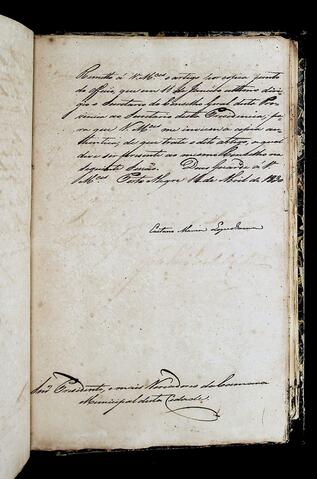 Remetto á V. M.ces o artigo por copia junto
do officio, que em 11 de Janeiro ultimo diri-
gio o Secretario do Conselho Geral desta Pro-
vincia ao Secretario desta Presidencia, pa-
ra que V. M.ces me enviem a copia au-
thentica, de que trata o dito artigo, a qual
deve ser presente ao mesmo Conselho na
seguinte Sessão. Deos Guarde a V.
M.ces Porto Alegre 16 de Abril de 1830
Caetano Maria Lopes Gama
Snr.es Presidente, e mais Vereadores da Camara
Municipal desta Cidade.